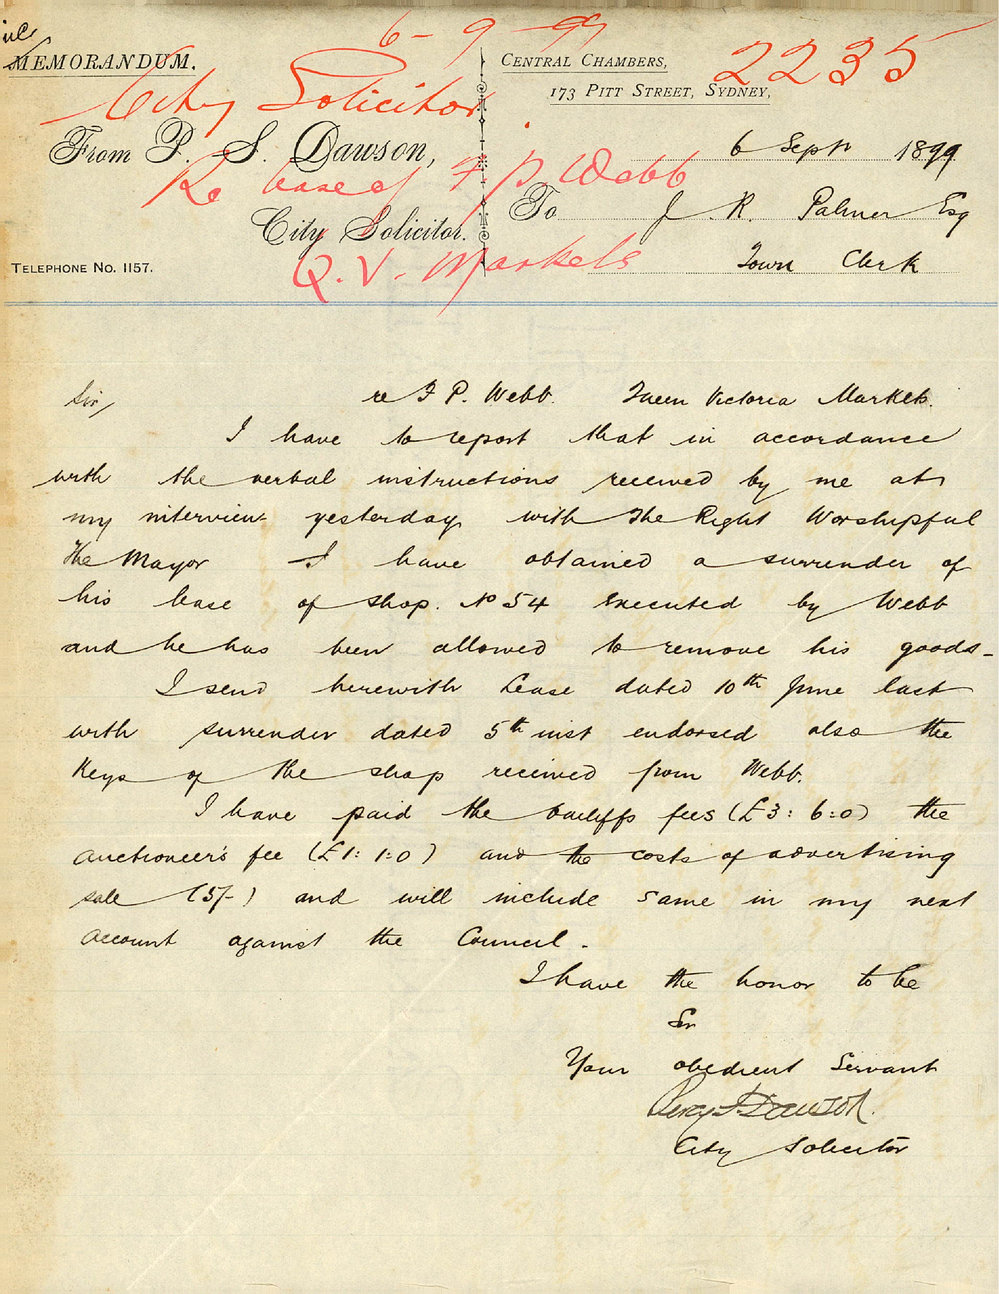 6-9-99
MEMORANDUM.
CENTRAL CHAMBERS,
2235
173 PITT STREET, SYDNEY,
City Solicitor
From P. S. Dawson,
6 Sept 1899
Re lease of F P Webb
To J. R. Palmer Esq
City Solicitor.
Q. V. Markets
TELEPHONE NO. 1157.
Town Clerk
Sir, re F P. Webb. Queen Victoria Markets.
I have to report that in accordance
with the verbal instructions received by me at
my interview yesterday with The Right Worshipful
The Mayor I have obtained a surrender of
his lease of shop. No 54 executed by Webb
and he has been allowed to remove his goods -
I send herewith Lease dated 10th June last
with surrender dated 5th inst endorsed also the
Keys of the shop received from Webb.
I have paid the bailiffs fees (£3: 6:0) the
Auctioneer's fee (£1: 1:0) and the costs of advertising
sale (5/-) and will include same in my next
account against the Council.
I have the honor to be
Sir
Your obedient Servant
Percy S Dawson.
City Solicitor